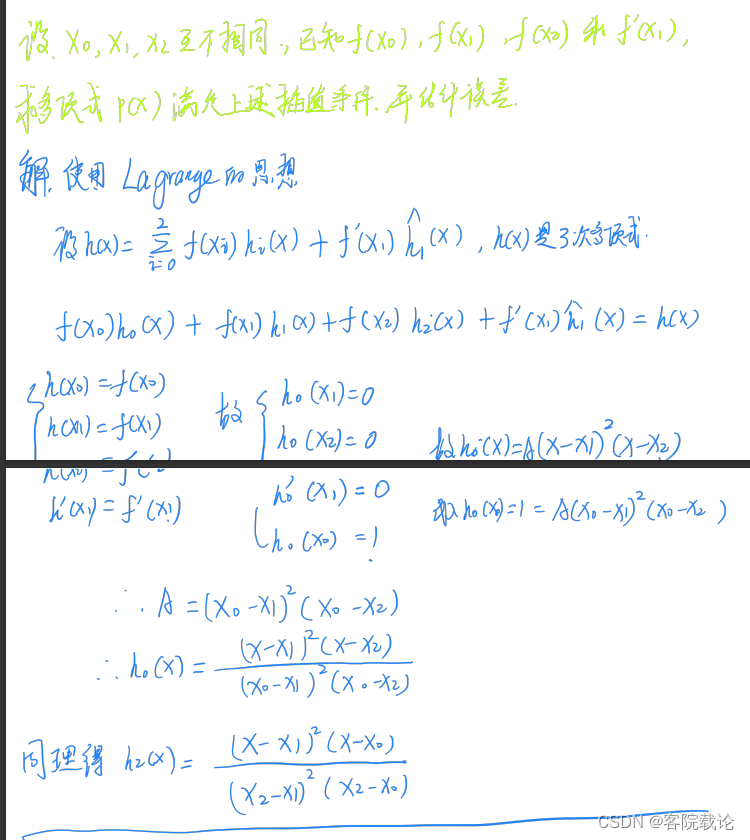 设 x0, x1, x2 互不相同, 已知 f(x0), f(x1), f(x2) 和 f'(x1),
求多项式 p(x) 满足上述插值条件. 并估计误差.
解. 使用 Lagrange 的思想
设 h(x) = ∑_{i=0}^{2} f(xi) hi(x) + f'(x1) ĥ1(x), h(x) 是 3 次多项式.
f(x0) h0(x) + f(x1) h1(x) + f(x2) h2(x) + f'(x1) ĥ1(x) = h(x)
h(x0) = f(x0)
h(x1) = f(x1)
h'(x1) = f'(x1)
故 { h0(x1) = 0
h0(x2) = 0
h0'(x1) = 0
h0(x0) = 1.
故 h0(x) = A(x-x1)^2(x-x2)
h0(x0) = 1 = A(x0-x1)^2(x0-x2)
∴ A = (x0-x1)^2(x0-x2)
∴ h0(x) = (x-x1)^2(x-x2) / (x0-x1)^2(x0-x2)
同理得 h2(x) = (x-x1)^2(x-x0) / (x2-x1)^2(x2-x0)
CSDN @客院载论